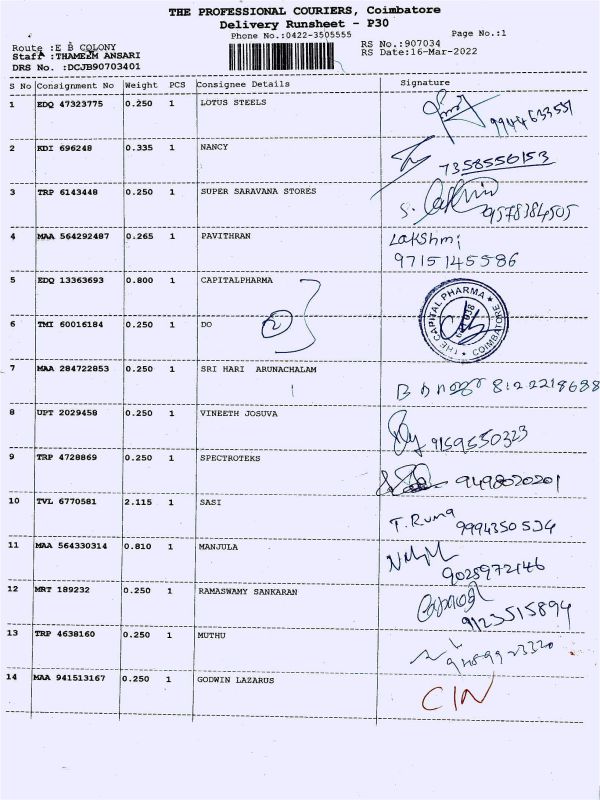 THE PROFESSIONAL COURIERS, Coimbatore
Delivery Runsheet - P30
Phone No.:0422-3505555 Page No.:1
Route :E B COLONY RS No.:907034
Staff :THAMEEM ANSARI RS Date:16-Mar-2022
DRS No. :DCJB90703401
S No Consignment No Weight PCS Consignee Details Signature
1 EDQ 47323775 0.250 1 LOTUS STEELS
2 KDI 696248 0.335 1 NANCY
7358556153
3 TRP 6143448 0.250 1 SUPER SARAVANA STORES
S. 9578384505
4 MAA 564292487 0.265 1 PAVITHRAN Lakshmi
9715145586
5 EDQ 13363693 0.800 1 CAPITALPHARMA
THE CAPITAL PHARMA * COIMBATORE *
6 TMI 60016184 0.250 1 DO 2
7 MAA 284722853 0.250 1 SRI HARI ARUNACHALAM
8122218688
8 UPT 2029458 0.250 1 VINEETH JOSUVA
9159550323
9 TRP 4728869 0.250 1 SPECTROTEKS
9498020201
10 TVL 6770581 2.115 1 SASI
T. Runa 9994350534
11 MAA 564330314 0.810 1 MANJULA
9025972146
12 MRT 189232 0.250 1 RAMASWAMY SANKARAN
9123515894
13 TRP 4638160 0.250 1 MUTHU
14 MAA 941513167 0.250 1 GODWIN LAZARUS
CIN